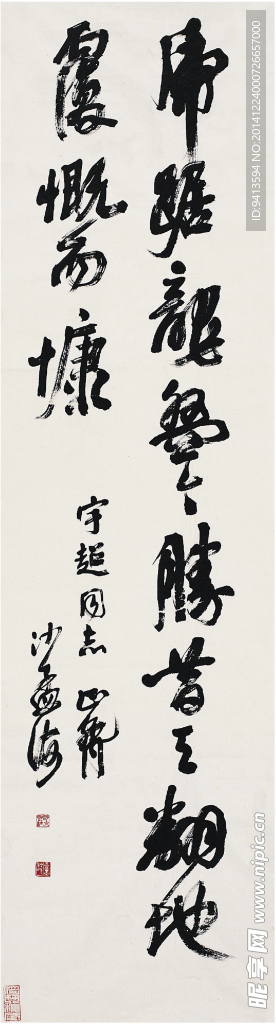 虎踞龍盤今勝昔天翻地
覆慨而慷
宇超同志 正腕
沙孟海
ID:9413594 NO:20141224000726657000
昵享网 www.nipic.cn